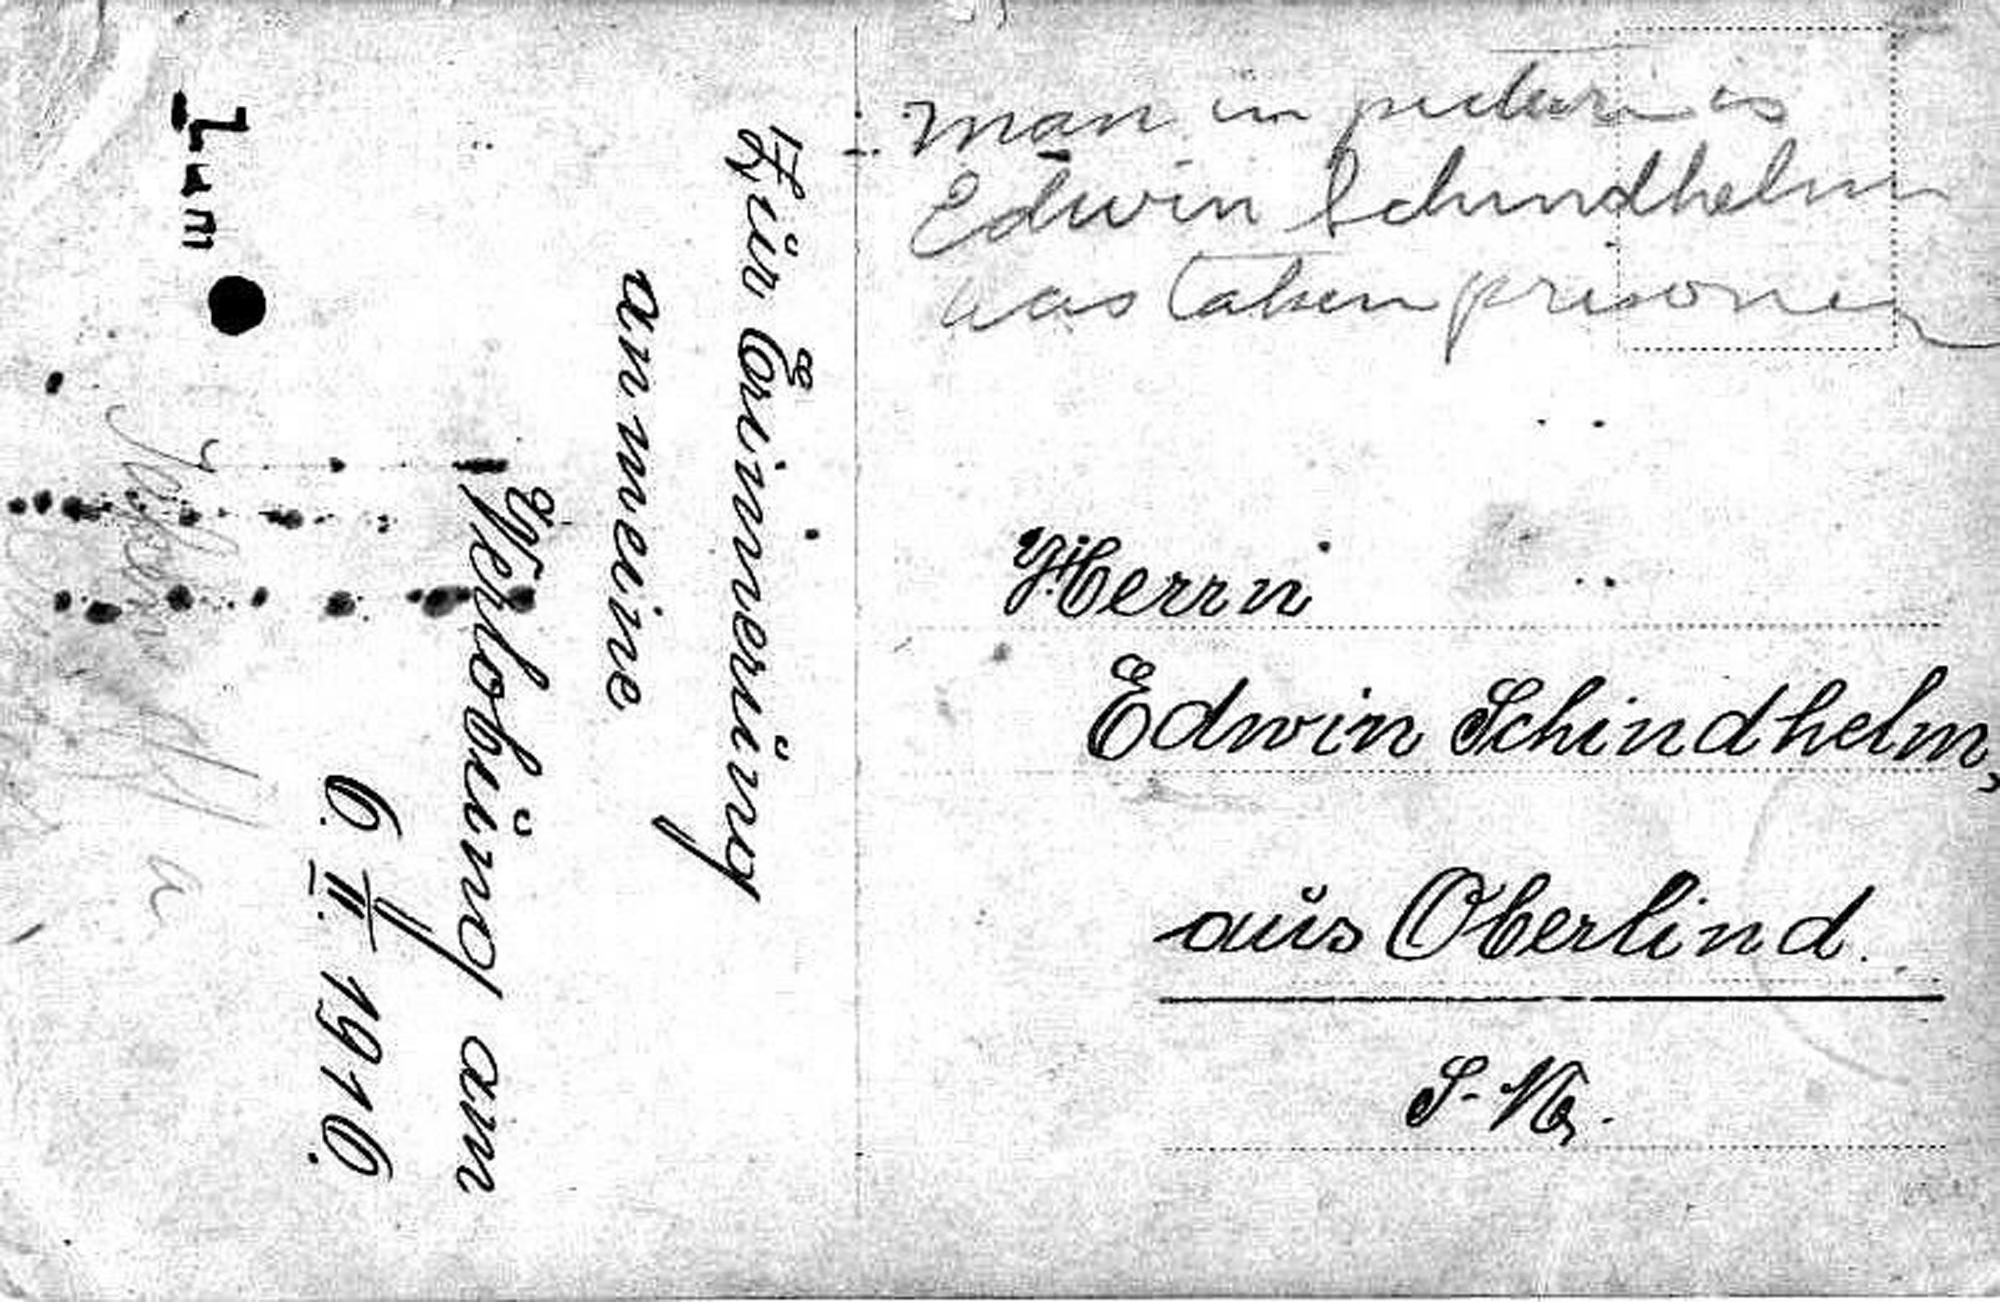 Zŭr Erinnerŭng
an meine
Verlobŭng am
6. II. 1916.
man in picture is
Edwin Schindhelm
was taken prisoner
Herrn
Edwin Schindhelm,
aŭs Oberlind.
S.-M.